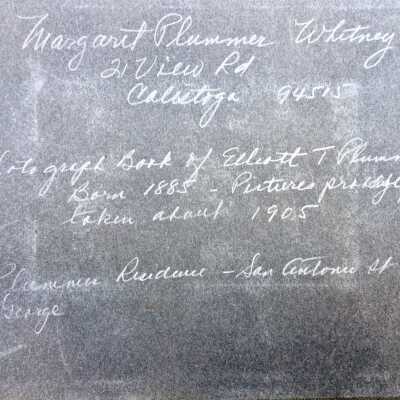 Margaret Plummer Whitney
21 View Rd
Calistoga 94515
otograph Book of Elliott T Plumm
Born 1885 - Pictures probably
taken about 1905
Plummer Residence - San Antonio St
George